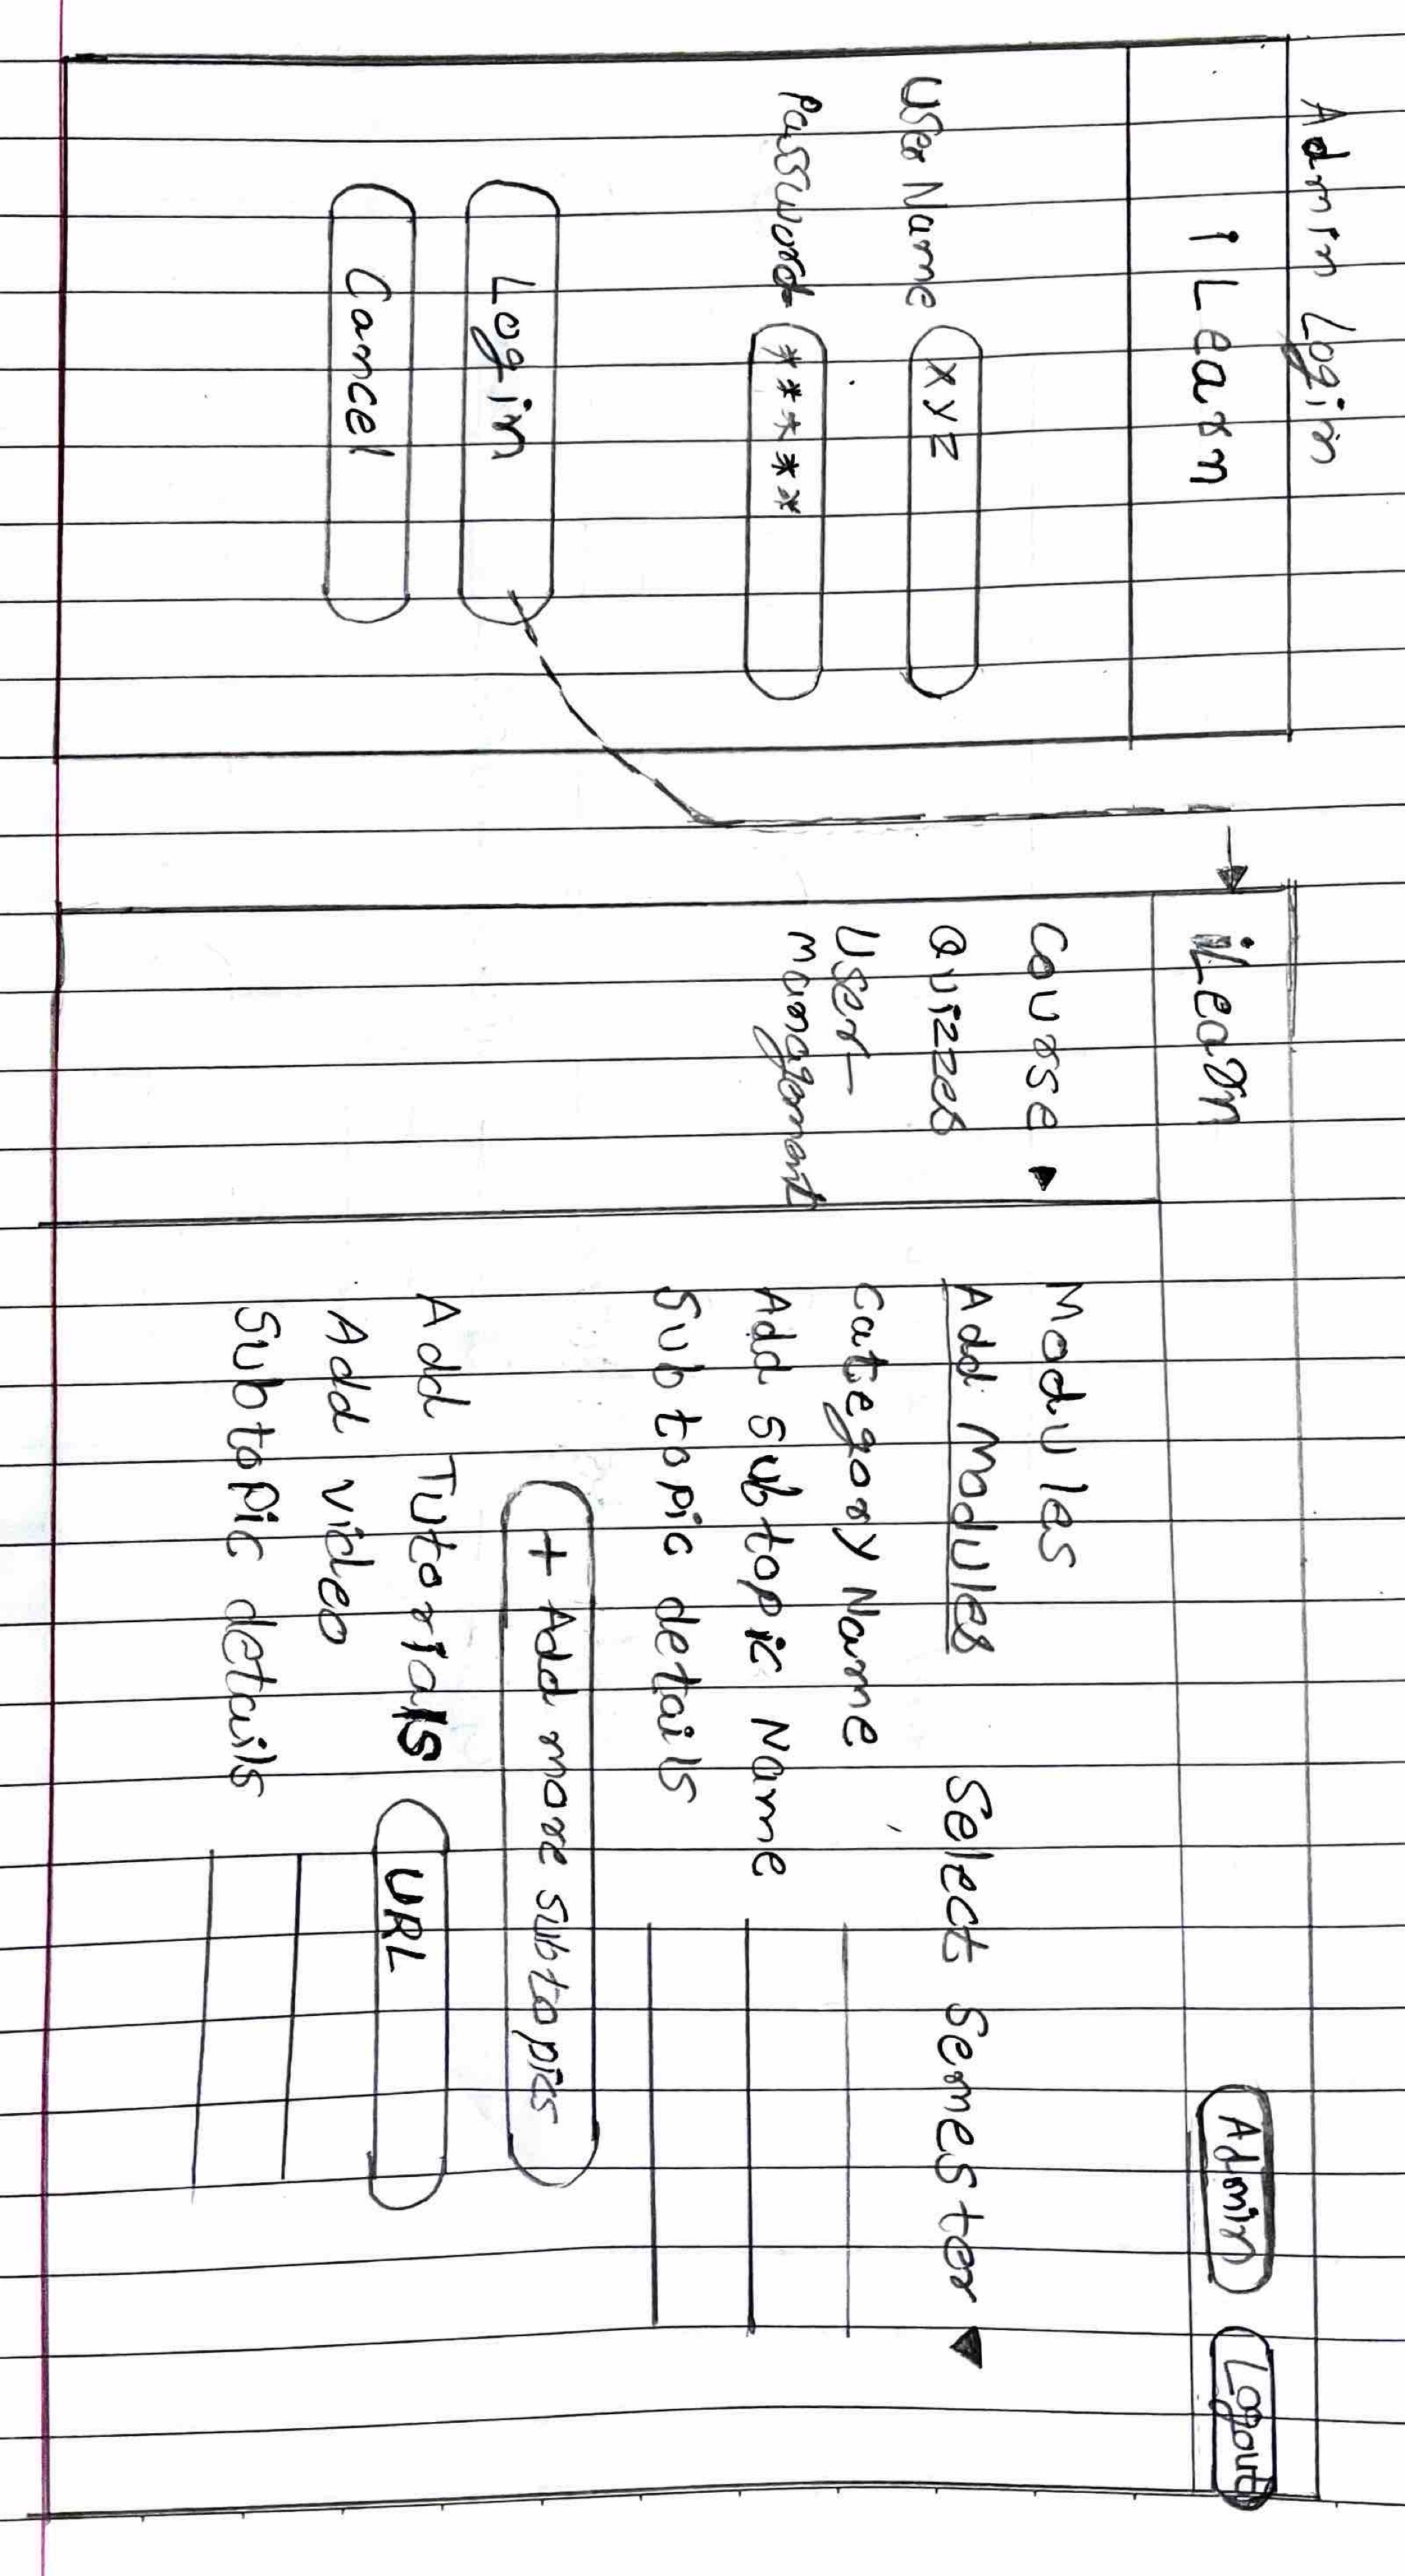 Admin Login
iLearn
User Name xyz
Password *****
Login
Cancel
iLearn
Admin Logout
Course ▶
Quizzes
User-
Management
Modules
Add Modules Select Semester ▼
Category Name
Add Subtopic Name
Subtopic details
+ Add more subtopics
Add Tutorials URL
Add video
Subtopic details